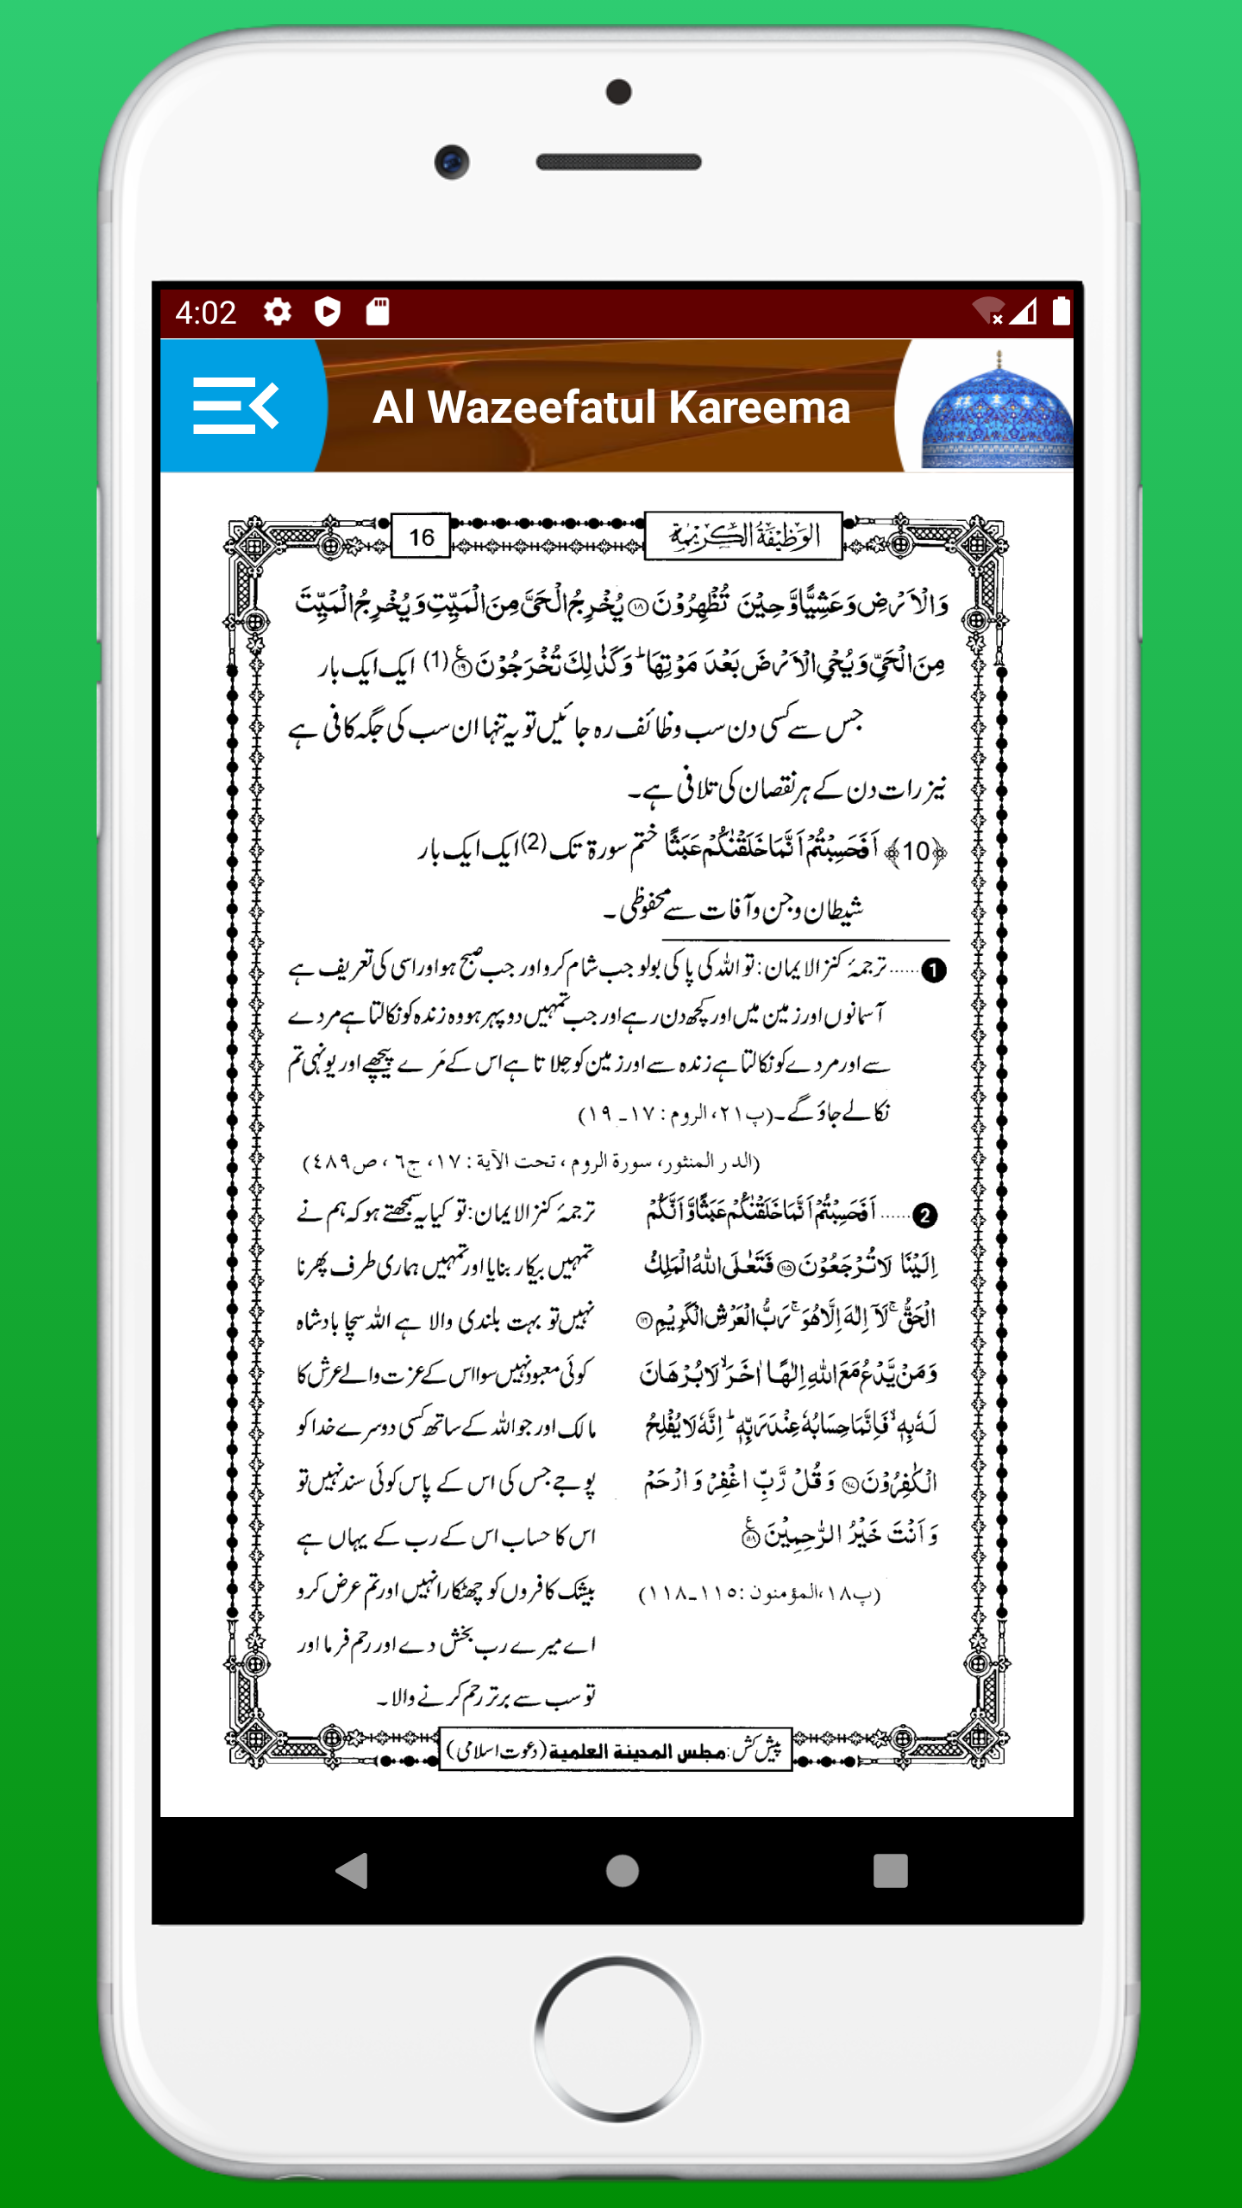 4:02
Al Wazeefatul Kareema
16
الوظیفۃ الکریمہ
وَالْاَرْضِ وَعَشِیًّا وَّحِیْنَ تُظْهِرُوْنَ ﴿۱۸﴾ یُخْرِجُ الْحَیَّ مِنَ الْمَیِّتِ وَیُخْرِجُ الْمَیِّتَ
مِنَ الْحَیِّ وَیُحْیِ الْاَرْضَ بَعْدَ مَوْتِهَا ؕ وَکَذٰلِكَ تُخْرَجُوْنَ ﴿۱۹﴾ (1) ایک ایک بار
جس سے کسی دن سب وظائف رہ جائیں تو یہ تنہا ان سب کی جگہ کافی ہے
نیز رات دن کے ہر نقصان کی تلافی ہے۔
﴿10﴾ اَفَحَسِبْتُمْ اَنَّمَا خَلَقْنٰكُمْ عَبَثًا ختم سورۃ تک (2) ایک ایک بار
شیطان و جن و آفات سے محفوظی۔
1 ...... ترجمۂ کنز الایمان: تو اللہ کی پاکی بولو جب شام کرو اور جب صبح ہو اور اسی کی تعریف ہے
آسمانوں اور زمین میں اور کچھ دن رہے اور جب تمہیں دوپہر ہو وہ زندہ کو نکالتا ہے مردے
سے اور مردے کو نکالتا ہے زندہ سے اور زمین کو جِلاتا ہے اس کے مَرے پیچھے اور یونہی تم
نکالے جاؤ گے۔ (پ۲۱، الروم: ۱۷۔۱۹)
(الدر المنثور، سورة الروم، تحت الآية: ۱۷، ج۶، ص۴۸۹)
2 ...... اَفَحَسِبْتُمْ اَنَّمَا خَلَقْنٰكُمْ عَبَثًا وَّاَنَّكُمْ
اِلَیْنَا لَا تُرْجَعُوْنَ ﴿۱۱۵﴾ فَتَعٰلَى اللّٰهُ الْمَلِكُ
الْحَقُّ ۚ لَاۤ اِلٰهَ اِلَّا هُوَ ۚ رَبُّ الْعَرْشِ الْكَرِیْمِ ﴿۱۱۶﴾
وَمَنْ یَّدْعُ مَعَ اللّٰهِ اِلٰهًا اٰخَرَ ۙ لَا بُرْهَانَ
لَهٗ بِهٖ ۙ فَاِنَّمَا حِسَابُهٗ عِنْدَ رَبِّهٖ ؕ اِنَّهٗ لَا یُفْلِحُ
الْكٰفِرُوْنَ ﴿۱۱۷﴾ وَقُلْ رَّبِّ اغْفِرْ وَارْحَمْ
وَاَنْتَ خَیْرُ الرّٰحِمِیْنَ ﴿۱۱۸﴾
(پ۱۸، المؤمنون: ۱۱۵۔۱۱۸)
ترجمۂ کنز الایمان: تو کیا یہ سمجھتے ہو کہ ہم نے
تمہیں بیکار بنایا اور تمہیں ہماری طرف پھرنا
نہیں تو بہت بلندی والا ہے اللہ سچا بادشاہ
کوئی معبود نہیں سوا اس کے عزت والے عرش کا
مالک اور جو اللہ کے ساتھ کسی دوسرے خدا کو
پوجے جس کی اس کے پاس کوئی سند نہیں تو
اس کا حساب اس کے رب کے یہاں ہے
بیشک کافروں کو چھٹکارا نہیں اور تم عرض کرو
اے میرے رب بخش دے اور رحم فرما اور
تو سب سے برتر رحم کرنے والا۔
پیش کش: مجلس المدینۃ العلمیۃ (دعوت اسلامی)